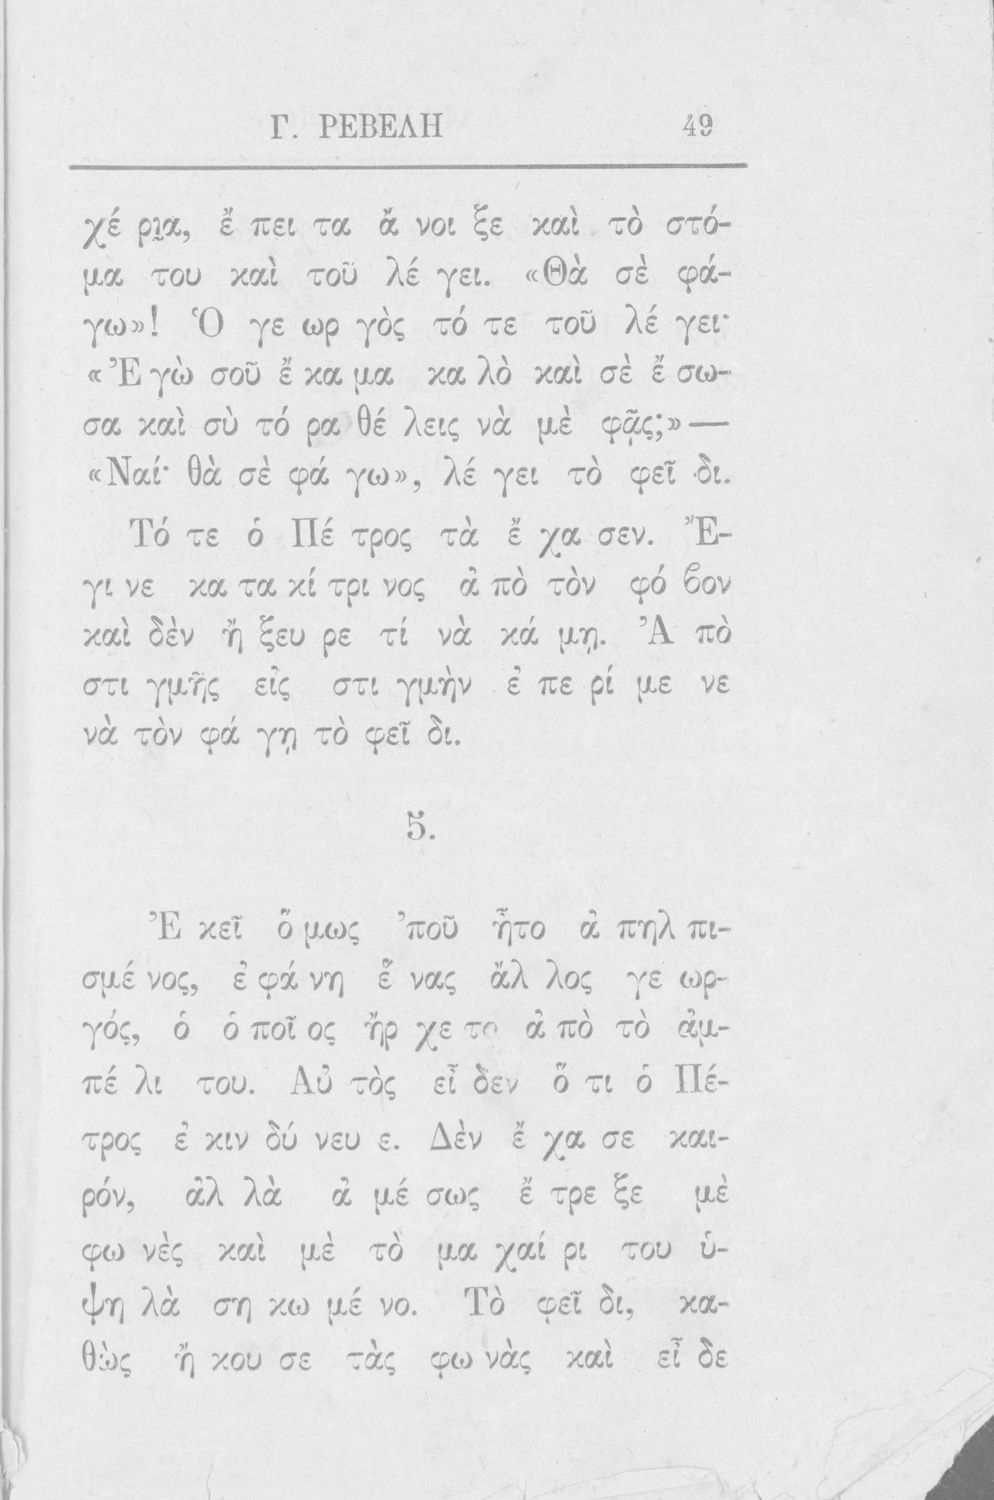 Γ. ΡΕΒΕΛΗ 49
χέ ρια, ἔ πει τα ἄ νοι ξε καὶ τὸ στό-
μα του καὶ τοῦ λέ γει. «Θὰ σὲ φά-
γω»! Ὁ γε ωρ γὸς τό τε τοῦ λέ γει·
«Ἐ γὼ σοῦ ἔ κα μα κα λὸ καὶ σὲ ἔ σω-
σα καὶ σὺ τό ρα θέ λεις νὰ μὲ φᾷς;»—
«Ναί· θὰ σὲ φά γω», λέ γει τὸ φεῖ δι.
Τό τε ὁ Πέ τρος τὰ ἔ χα σεν. Ἔ-
γι νε κα τα κί τρι νος ἀ πὸ τὸν φό βον
καὶ δὲν ἤ ξευ ρε τί νὰ κά μῃ. Ἀ πὸ
στι γμῆς εἰς στι γμὴν ἐ πε ρί με νε
νὰ τὸν φά γῃ τὸ φεῖ δι.
5.
Ἐ κεῖ ὅ μως ’ποῦ ἦτο ἀ πηλ πι-
σμέ νος, ἐ φά νη ἕ νας ἄλ λος γε ωρ-
γός, ὁ ὁ ποῖ ος ἤρ χε το ἀ πὸ τὸ ἀμ-
πέ λι του. Αὐ τὸς εἶ δεν ὅ τι ὁ Πέ-
τρος ἐ κιν δύ νευ ε. Δὲν ἔ χα σε και-
ρόν, ἀλ λὰ ἀ μέ σως ἔ τρε ξε μὲ
φω νὲς καὶ μὲ τὸ μα χαί ρι του ὑ-
ψη λὰ ση κω μέ νο. Τὸ φεῖ δι, κα-
θὼς ἤ κου σε τὰς φω νὰς καὶ εἶ δε